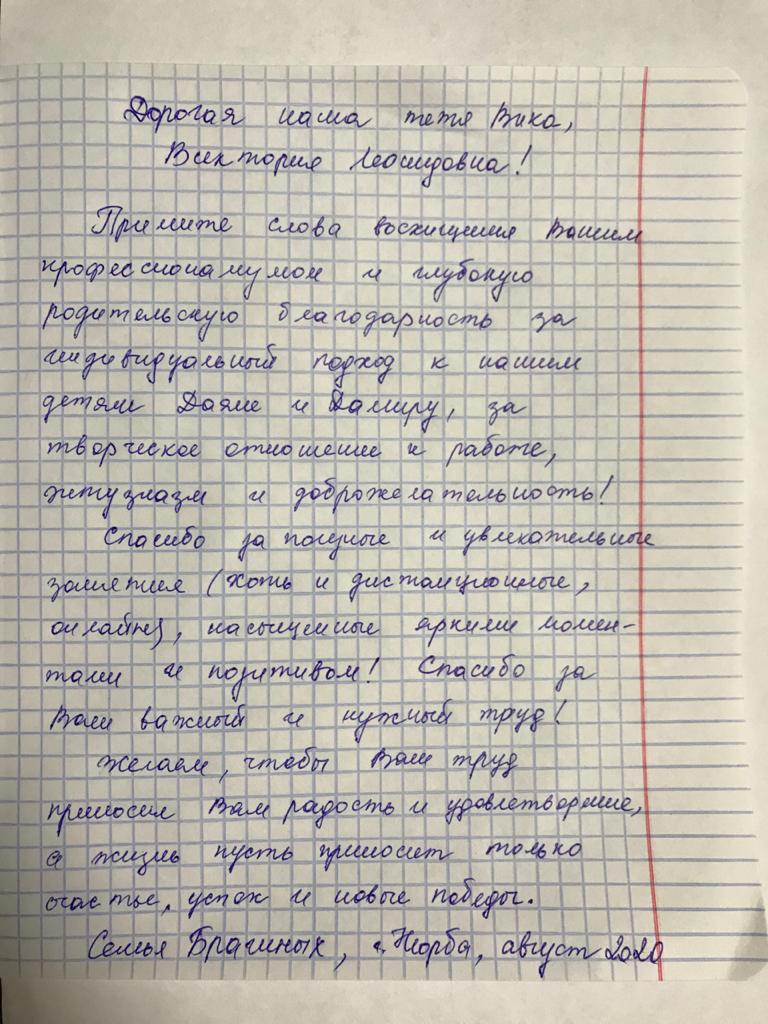 Дорогая наша тетя Вика,
Виктория Леонидовна!
Примите слова восхищения Вашим
профессионализмом и глубокую
родительскую благодарность за
индивидуальный подход к нашим
детям Даяне и Дамиру, за
творческое отношение к работе,
энтузиазм и доброжелательность!
Спасибо за полезные и увлекательные
занятия (хоть и дистанционные,
онлайн), насыщенные яркими момен-
тами и позитивом! Спасибо за
Ваш важный и нужный труд!
Желаем, чтобы Ваш труд
приносил Вам радость и удовлетворение,
а жизнь пусть приносит только
счастье, успех и новые победы.
Семья Брагиных, с. Нюрба, август 2020